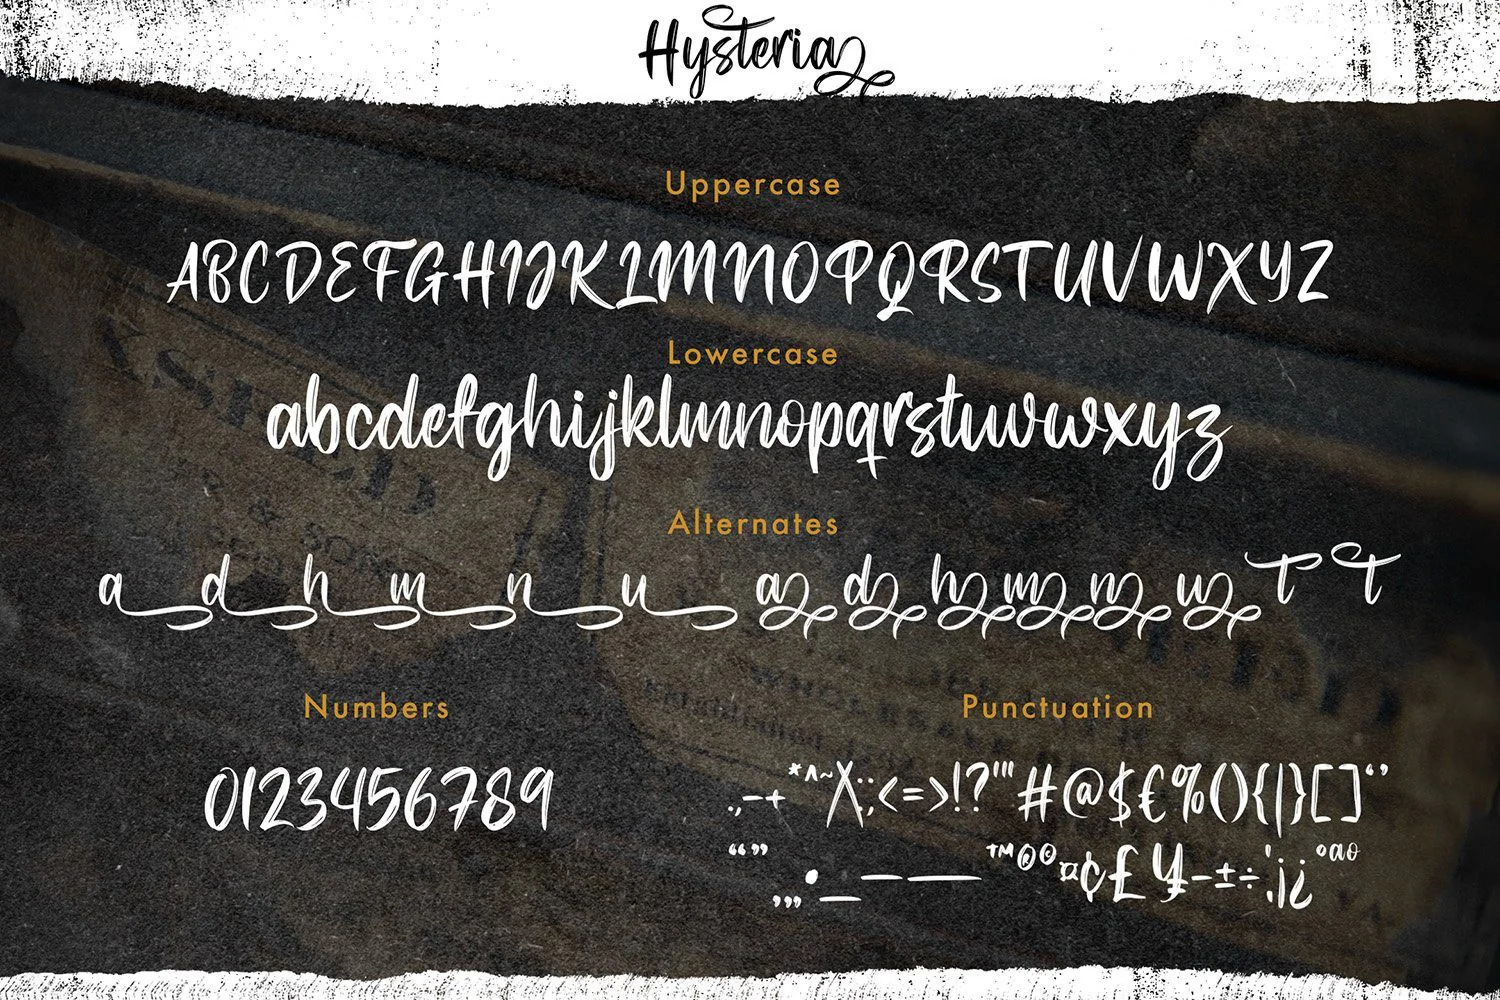 Hysteria
Uppercase
ABCDEFGHIJKLMNOPQRSTUVWXYZ
Lowercase
abcdefghijklmnopqrstuvwxyz
Alternates
a d h m n u a d h m n u T T
Numbers
Punctuation
0123456789
.,-+*^~/\:;<=>!?"'#@$€%(){|}[]‘’
“”
‚„•_–—™®©¤¢£¥-±÷¦¡¿°ªº